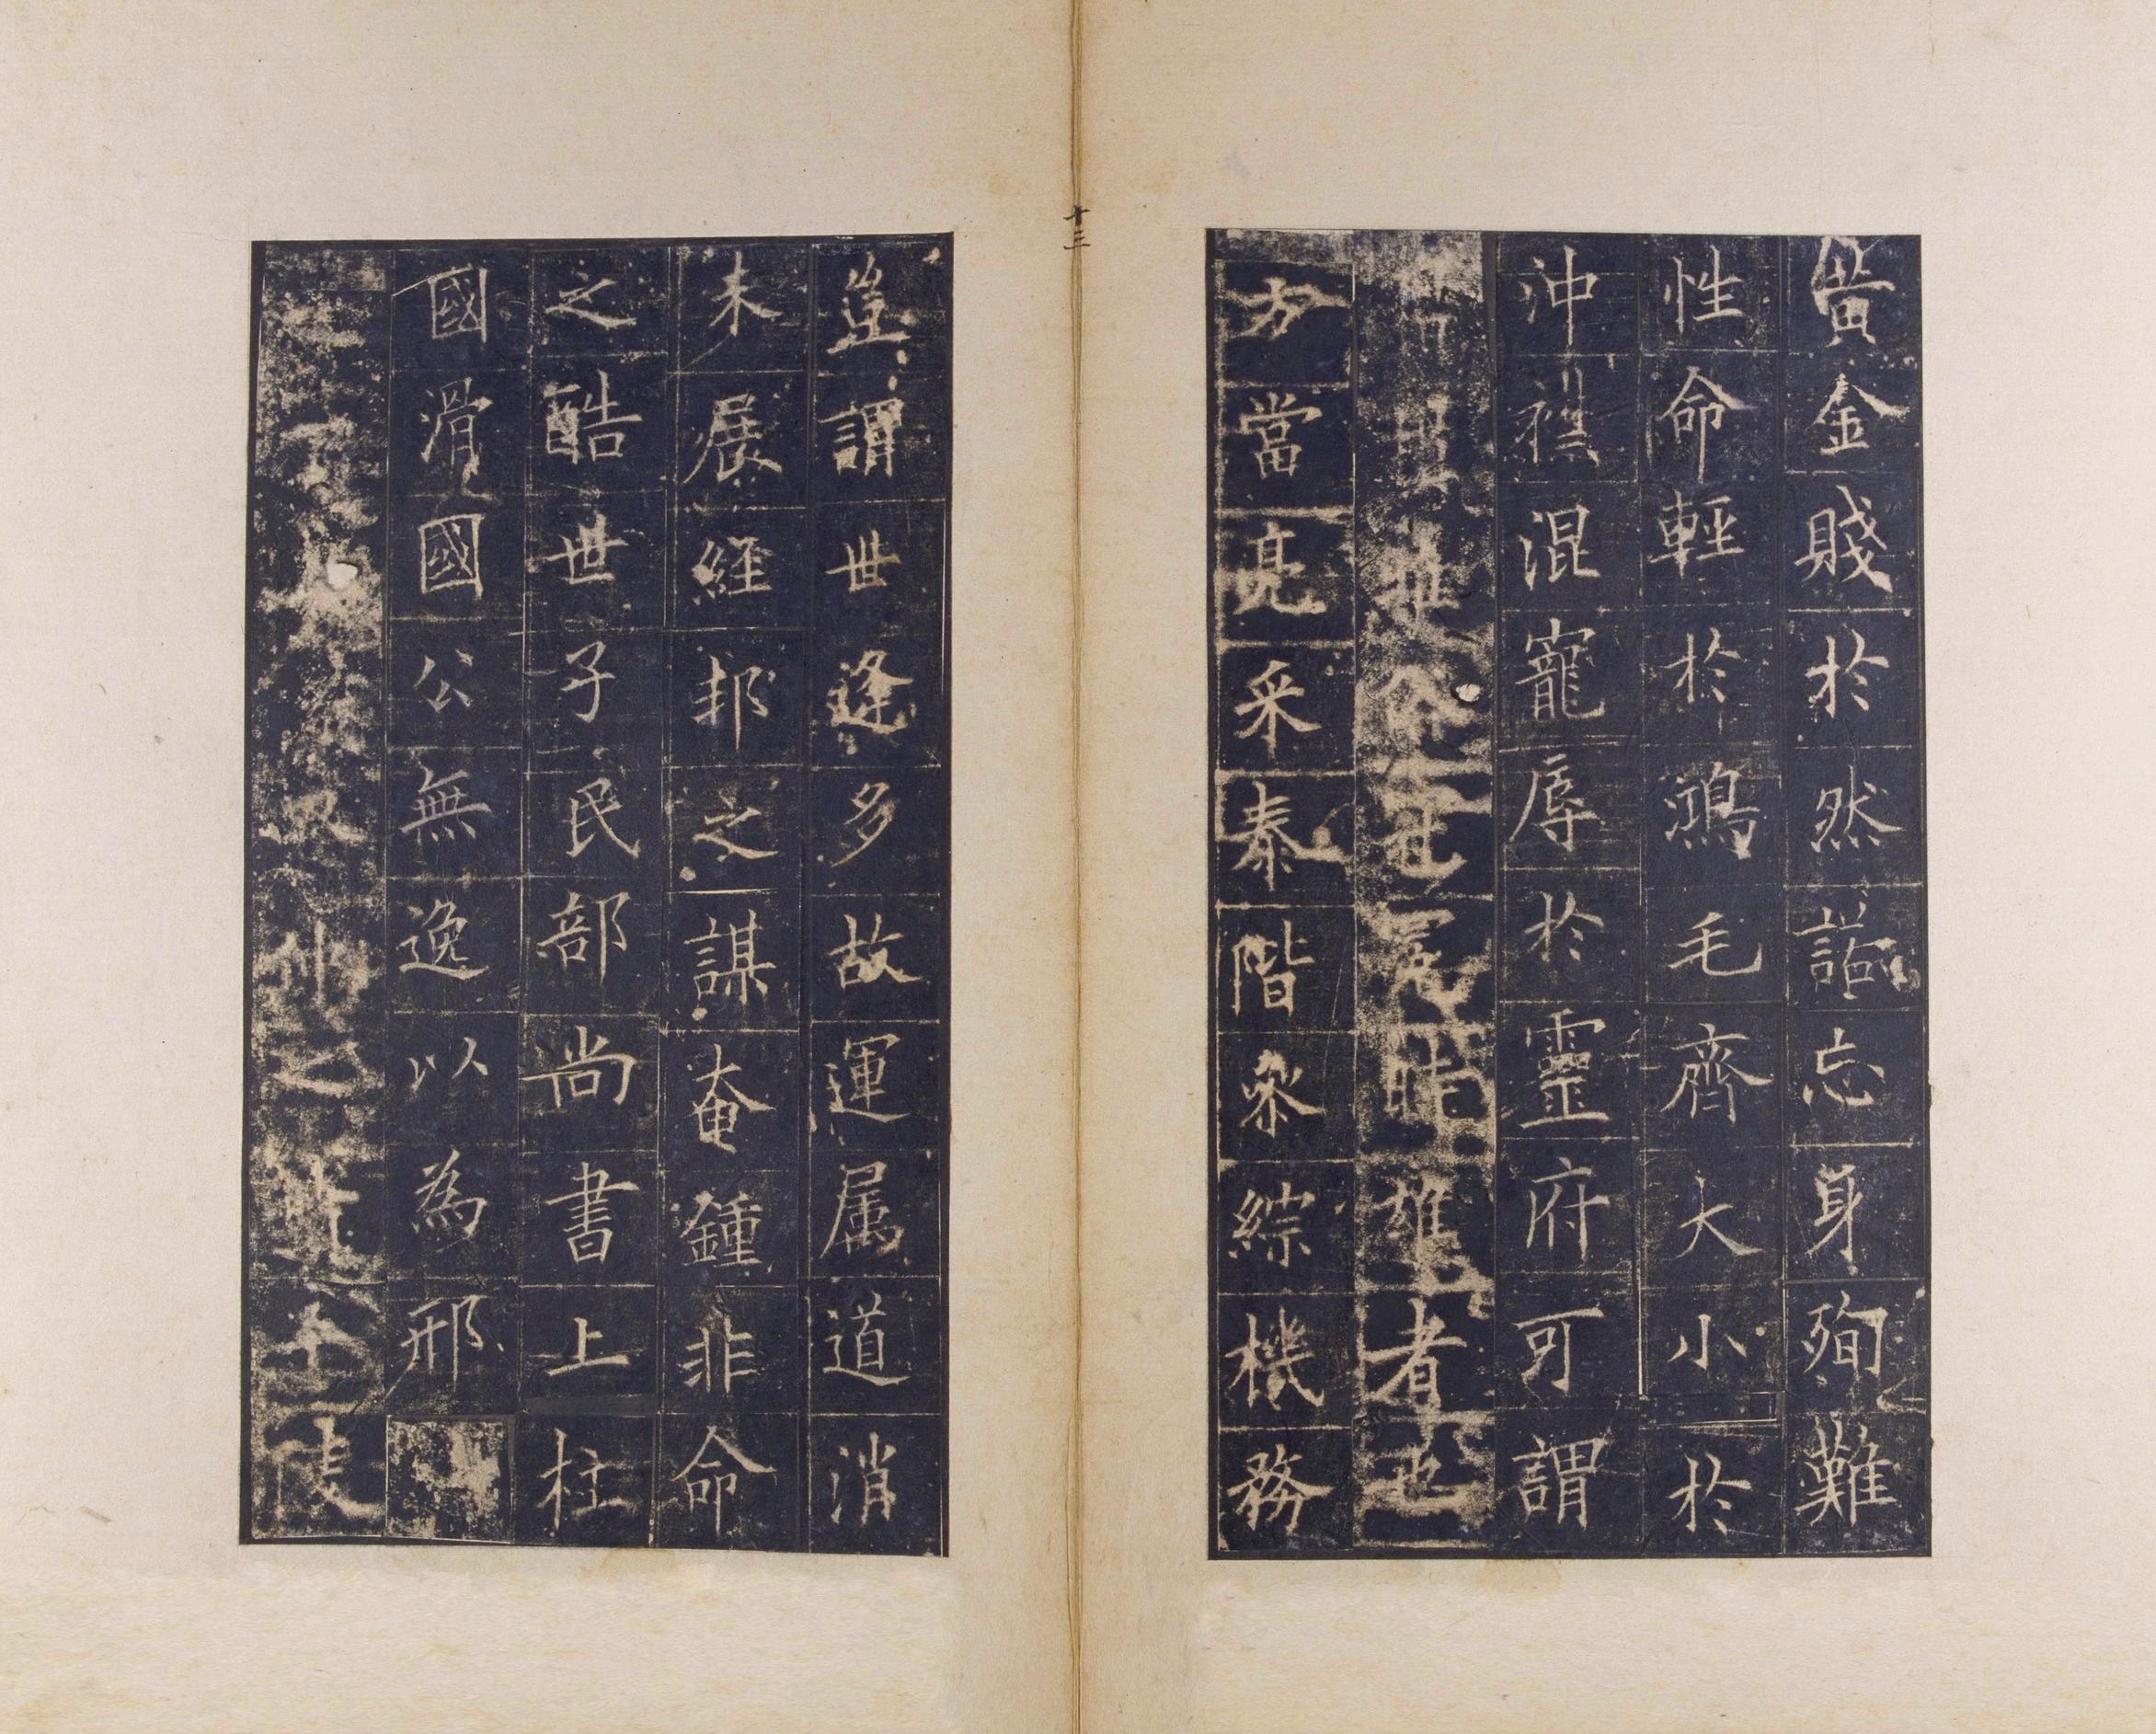 黃金賤於然諾忘身殉難
性命輕於鴻毛齊大小於
沖襟混寵辱於靈府可謂
雅時雄者也
方當亮采泰階參綜機務
十三
豈謂世逢多故運属道消
未展經邦之謀奄鍾非命
之酷世子民部尚書上柱
國滑國公無逸以為邢
仲之